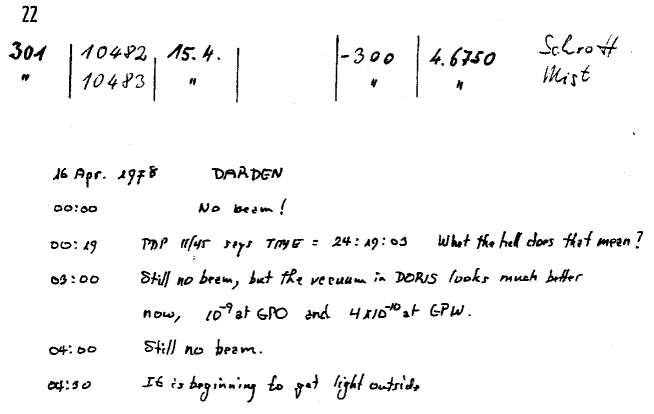 22
301 10482 15.4. -300 4.6750 Schrott
" 10483 " " " Mist
16 Apr. 1978 DARDEN
00:00 No beam!
00:19 PDP 11/45 says TIME = 24:19:03 What the hell does that mean?
03:00 Still no beam, but the vacuum in DORIS looks much better
now, 10⁻⁹ at GPO and 4x10⁻¹⁰ at GPW.
04:00 Still no beam.
04:30 It is beginning to get light outside